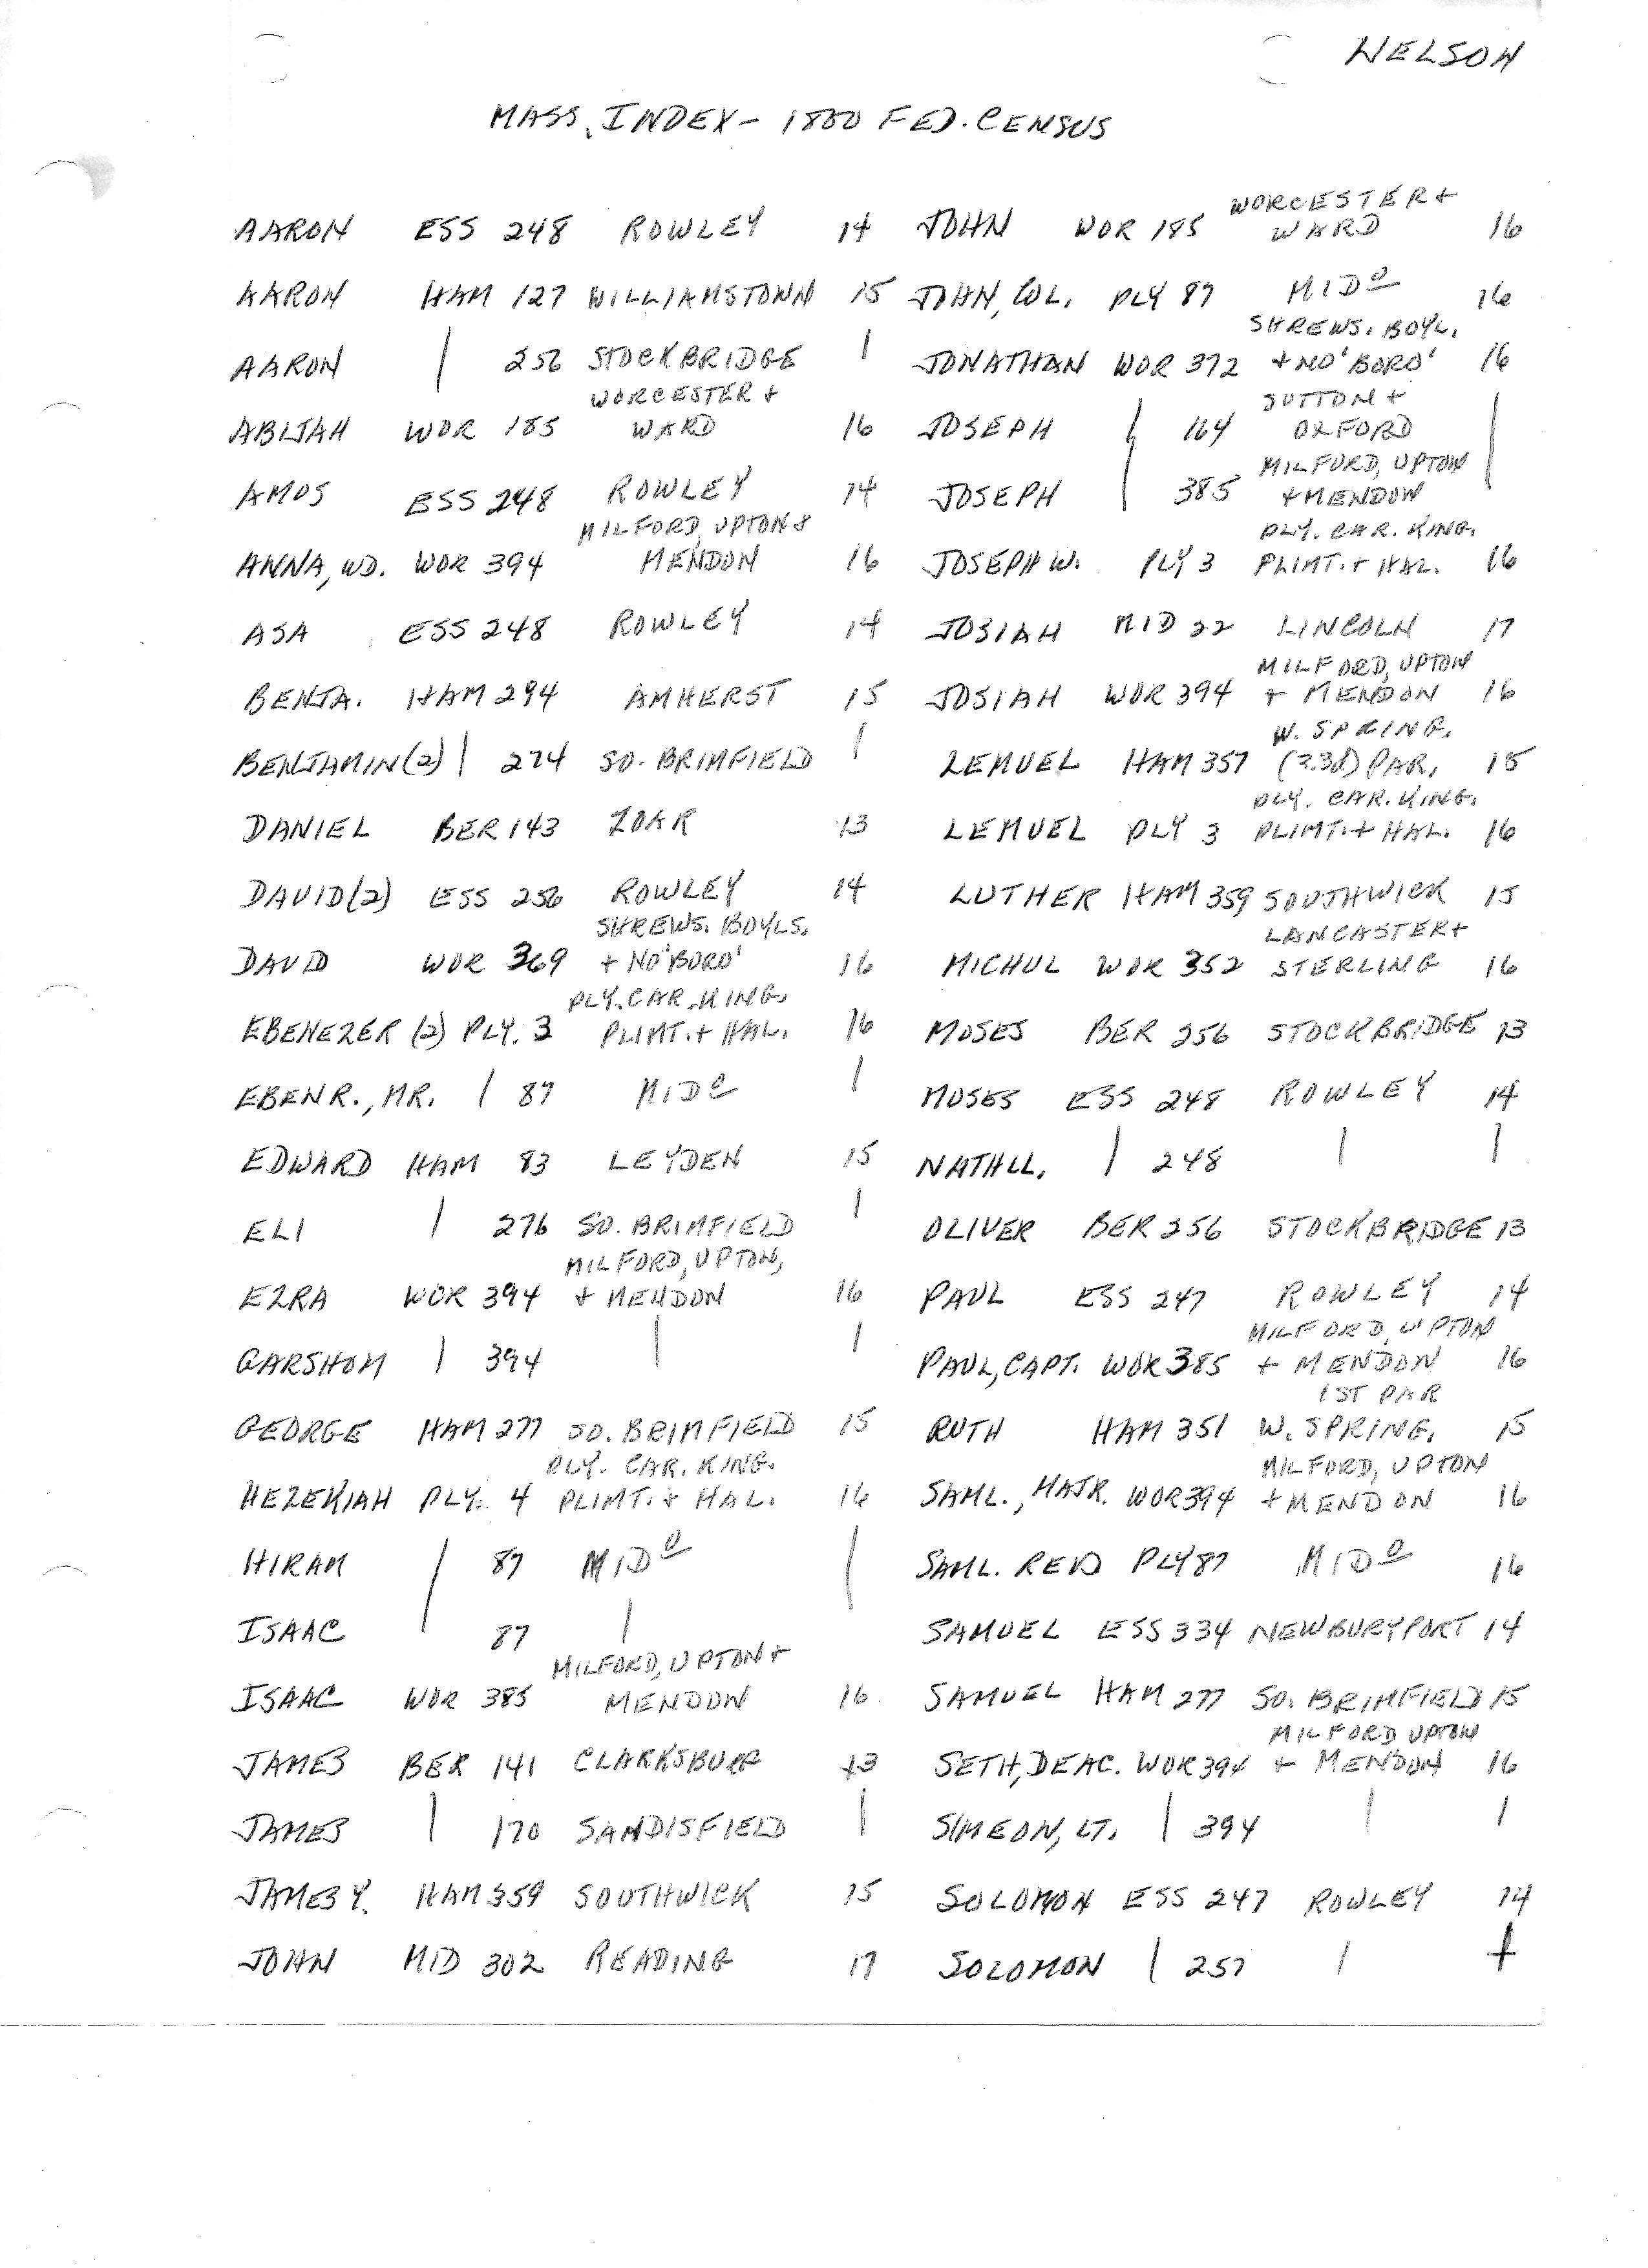 NELSON
MASS. INDEX - 1800 FED. CENSUS
AARON ESS 248 ROWLEY 14
AARON HAM 127 WILLIAMSTOWN 15
AARON | 256 STOCKBRIDGE |
WORCESTER +
ABIJAH WOR 185 WARD 16
AMOS ESS 248 ROWLEY 14
MILFORD, UPTON +
ANNA, WD. WOR 394 MENDON 16
ASA ESS 248 ROWLEY 14
BENJA. HAM 294 AMHERST 15
BENJAMIN (2) | 274 SO. BRIMFIELD |
DANIEL BER 143 ZOAR 13
DAVID (2) ESS 256 ROWLEY 14
SHREWS. BOYLS.
DAVID WOR 369 + NO'BORO' 16
PLY. CAR. KING.
EBENEZER (2) PLY. 3 PLIMT. + HAL. 16
EBENR., MR. | 87 MIDO |
EDWARD HAM 83 LEYDEN 15
ELI | 276 SO. BRIMFIELD |
MILFORD, UPTON,
EZRA WOR 394 + MENDON 16
GARSHOM | 394 | |
GEORGE HAM 277 SO. BRIMFIELD 15
PLY. CAR. KING.
HEZEKIAH PLY. 4 PLIMT. + HAL. 16
HIRAM | 87 MIDO |
ISAAC 87 |
MILFORD, UPTON +
ISAAC WOR 385 MENDON 16
JAMES BER 141 CLARKSBURG 13
JAMES | 170 SANDISFIELD |
JAMES Y. HAM 359 SOUTHWICK 15
JOHN MID 302 READING 17
WORCESTER +
JOHN WOR 185 WARD 16
JOHN, COL. PLY 87 MIDO 16
SHREWS. BOYL.
JONATHAN WOR 372 + NO'BORO' 16
SUTTON +
JOSEPH | 164 OXFORD |
MILFORD, UPTON
JOSEPH | 385 + MENDON
PLY. CAR. KING.
JOSEPH W. PLY 3 PLIMT. + HAL. 16
JOSIAH MID 22 LINCOLN 17
MILFORD, UPTON
JOSIAH WOR 394 + MENDON 16
W. SPRING.
LEMUEL HAM 357 (3.3d) PAR. 15
PLY. CAR. KING.
LEMUEL PLY 3 PLIMT. + HAL. 16
LUTHER HAM 359 SOUTHWICK 15
LANCASTER +
MICHUL WOR 352 STERLING 16
MOSES BER 256 STOCKBRIDGE 13
MOSES ESS 248 ROWLEY 14
NATHLL. | 248 | |
OLIVER BER 256 STOCKBRIDGE 13
PAUL ESS 247 ROWLEY 14
MILFORD, UPTON
PAUL, CAPT. WOR 385 + MENDON 16
1ST PAR
RUTH HAM 351 W. SPRING. 15
MILFORD, UPTON
SAML., MAJR. WOR 394 + MENDON 16
SAML. REVD PLY 87 MIDO 16
SAMUEL ESS 334 NEWBURYPORT 14
SAMUEL HAM 277 SO. BRIMFIELD 15
MILFORD UPTON
SETH, DEAC. WOR 394 + MENDON 16
SIMEON, LT. | 394 | |
SOLOMON ESS 247 ROWLEY 14
SOLOMON | 257 | |